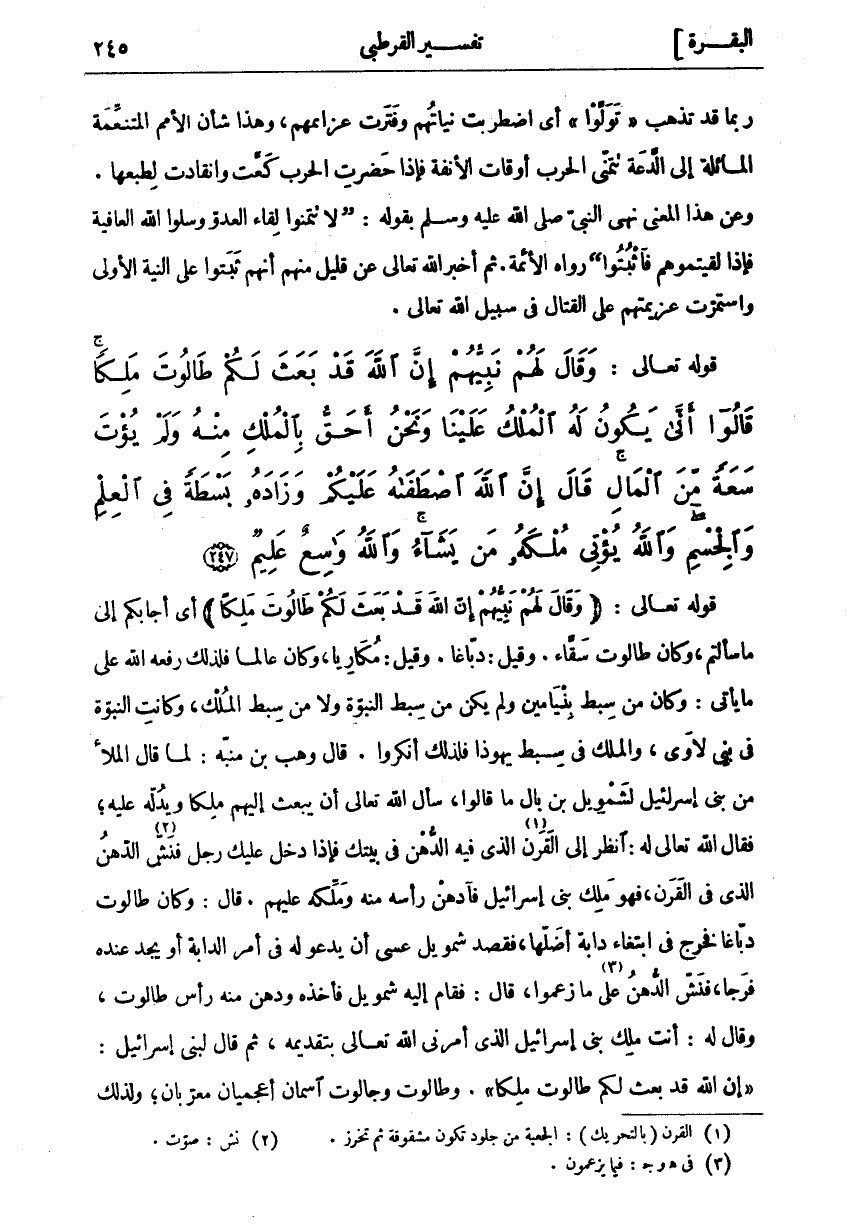 البقـــرة ] تفســـير القرطبى ٢٤٥
ربما قد تذهب « تَوَلَّوْا » أى اضطربت نياتُهم وفَتَرت عزائمهم، وهذا شأن الأمم المتنعِّمَة
المـائلة إلى الدَّعَة تتمنّى الحرب أوقات الأنفة فإذا حَضرتِ الحرب كَعَّت وانقادت لِطبعها .
وعن هذا المعنى نهى النبىّ صلى الله عليه وسـلم بقوله : ”لا تتمنوا لِقاء العدوّ وسلوا الله العافية
فإذا لقيتموهم فَٱثْبُتُوا“ رواه الأئمة. ثم أخبر الله تعالى عن قليل منهم أنهم ثَبَتوا على النية الأولى
واستمرّت عزيمتهم على القتال فى سبيل الله تعالى .
قوله تعـالى : وَقَالَ لَهُمْ نَبِيُّهُمْ إِنَّ ٱللَّهَ قَدْ بَعَثَ لَـكُمْ طَالُوتَ مَلِـكًا ۚ
قَالُوٓا أَنَّىٰ يَكُونُ لَهُ ٱلْمُلْكُ عَلَيْنَا وَنَحْنُ أَحَـقُّ بِٱلْمُلْكِ مِنْـهُ وَلَمْ يُؤْتَ
سَعَةً مِّنَ ٱلْمَالِ ۚ قَالَ إِنَّ ٱللَّهَ ٱصْطَفَىٰهُ عَلَيْكُمْ وَزَادَهُۥ بَسْطَةً فِى ٱلْعِلْمِ
وَٱلْجِسْمِ ۖ وَٱللَّهُ يُؤْتِى مُلْـكَهُۥ مَن يَشَآءُ ۚ وَٱللَّهُ وَٰسِعٌ عَلِيمٌ ﴿٢٤٧﴾
قوله تعـالى : ﴿ وَقَالَ لَهُمْ نَبِيُّهُمْ إِنّ اللهَ قَـدْ بَعَثَ لَكُمْ طَالُوتَ مَلِـكًا ﴾ أى أجابكم إلى
ماسألتم، وكان طالوت سَقَّاء . وقيل: دبّاغا . وقيل: مُكَارِيا، وكان عالمـا فلذلك رفعه الله على
مايأتى : وكان من سِبط بِنْيَامين ولم يكن من سِبط النبوّة ولا من سِبط المُلْك، وكانتِ النبوّة
فى بنى لاَوَى ، والملك فى ســبط يهوذا فلذلك أنكروا . قال وهب بن منبّه : لمـا قال الملأ
من بنى إسرائيل لشَمْويل بن بال ما قالوا، سأل الله تعالى أن يبعث إليهم ملِكا ويدُلّه عليه؛
فقال الله تعالى له : ٱنظر إلى القَرَن (١) الذى فيه الدُّهْن فى بيتك فإذا دخل عليك رجل فنَشّ (٢) الدّهنُ
الذى فى القَرَن، فهو مَلِك بنى إسرائيل فٱدهنْ رأسه منه ومَلِّكه عليهم . قال : وكان طالوت
دبّاغا فخرج فى ابتغاء دابة أضلّها، فقصد شمويل عسى أن يدعو له فى أمر الدابة أو يجد عنده
فرَجا، فنَشّ الدُّهنُ على ما زعموا (٣)، قال : فقام إليه شمويل فأخذه ودهن منه رأس طالوت ،
وقال له : أنت ملِك بنى إسرائيل الذى أمرنى الله تعـالى بتقديمه ، ثم قال لبنى إسرائيل :
«إن الله قد بعث لكم طالوت ملِكا» . وطالوت وجالوت ٱسمان أعجميان معرّبان؛ ولذلك
(١) القرن ( بالتحريك ) : الجعبة من جلود تكون مشقوقة ثم تخرز . (٢) نش : صوّت .
(٣) فى ھ و ج : فيما يزعمون .